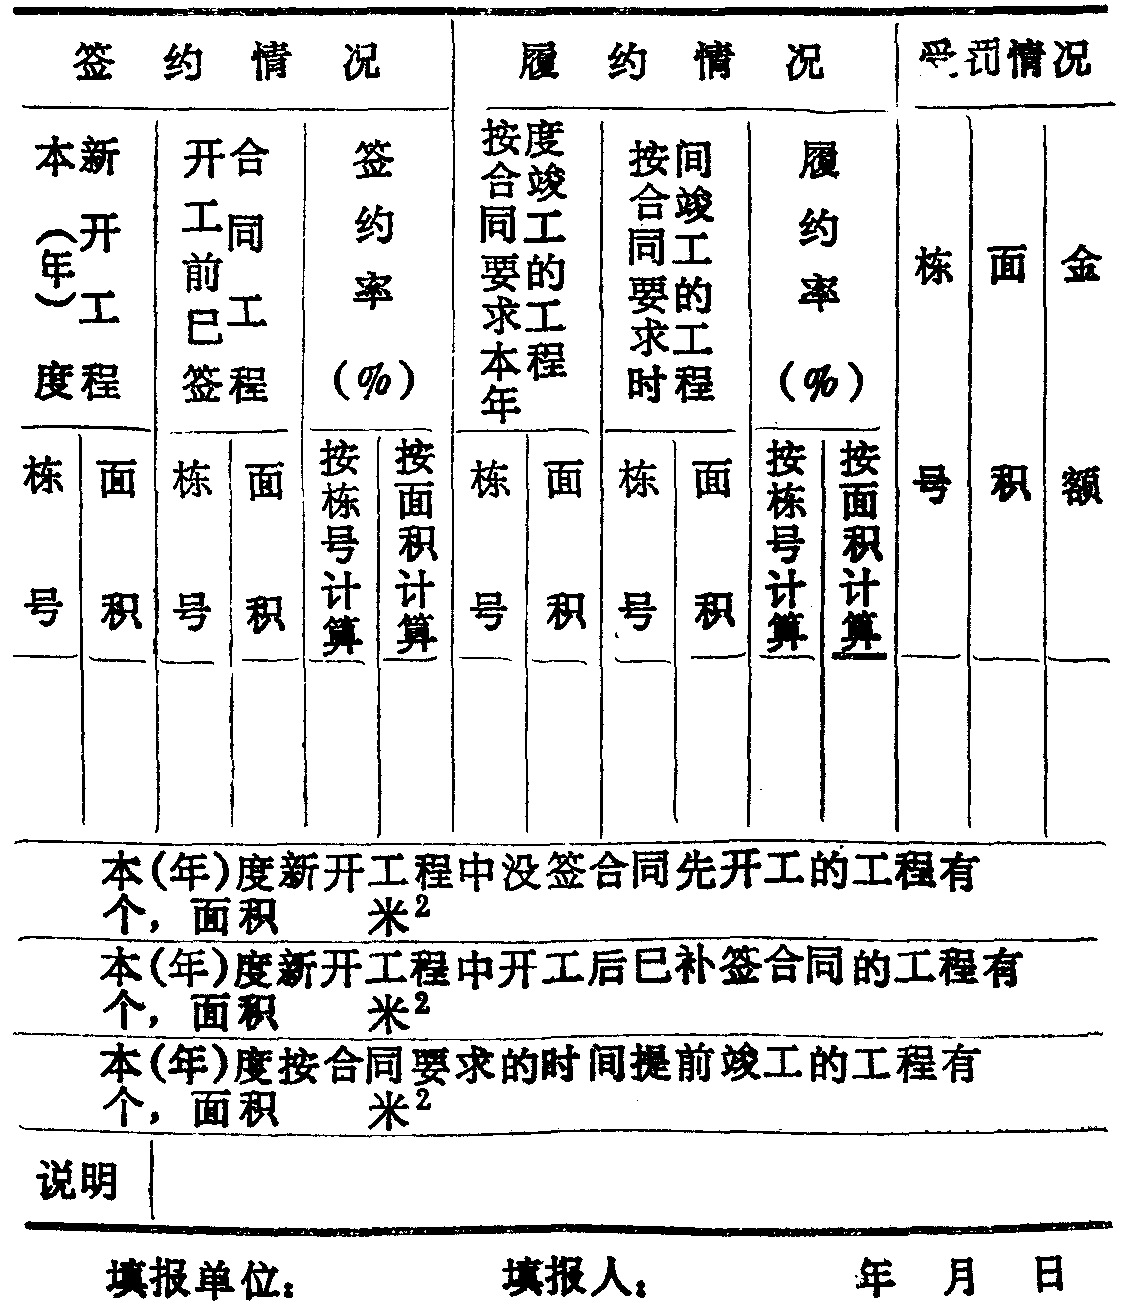 签约情况 履约情况 受罚情况
本(年)度新开工程 开工前已签合同工程 签约率(%) 按合同要求本年度竣工的工程 按合同要求时间竣工的工程 履约率(%) 栋号 面积 金额
栋号 面积 栋号 面积 按栋号计算 按面积计算 栋号 面积 栋号 面积 按栋号计算 按面积计算
本(年)度新开工程中没签合同先开工的工程有
个,面积 米²
本(年)度新开工程中开工后已补签合同的工程有
个,面积 米²
本(年)度按合同要求的时间提前竣工的工程有
个,面积 米²
说明
填报单位: 填报人: 年 月 日